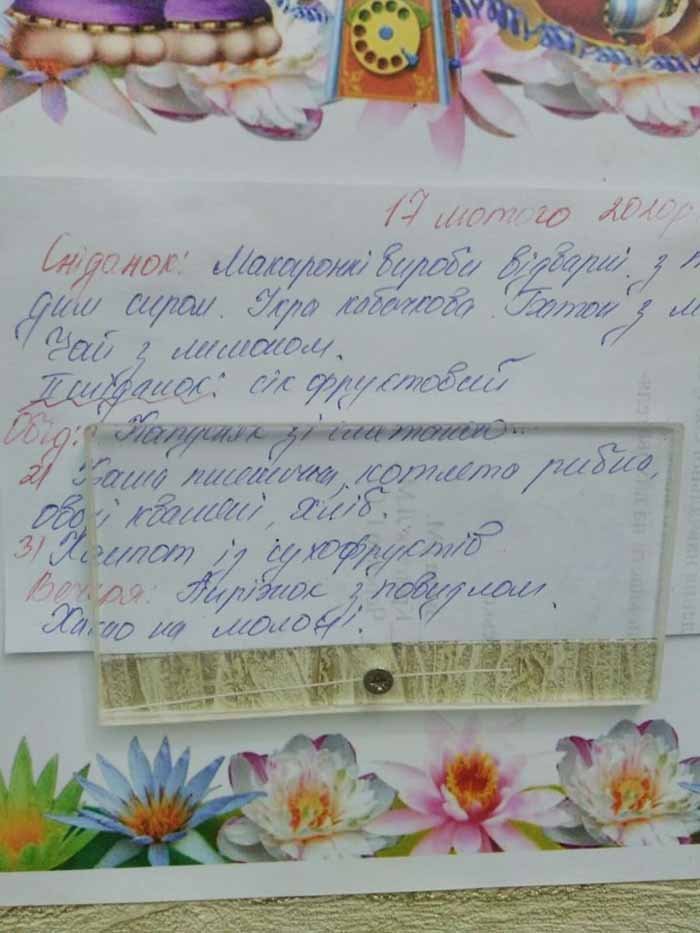 17 лютого 2020р
Сніданок: Макаронні вироби відварні з т
дим сиром. Ікра кабачкова. Батон з м
Чай з лимоном.
ІІ сніданок: сік фруктовий
Обід: Капусняк зі сметаною
2) Каша пшенична, котлета рибна,
овочі квашені, хліб.
3) Компот із сухофруктів
Вечеря: Пиріжок з повидлом.
Какао на молоці.